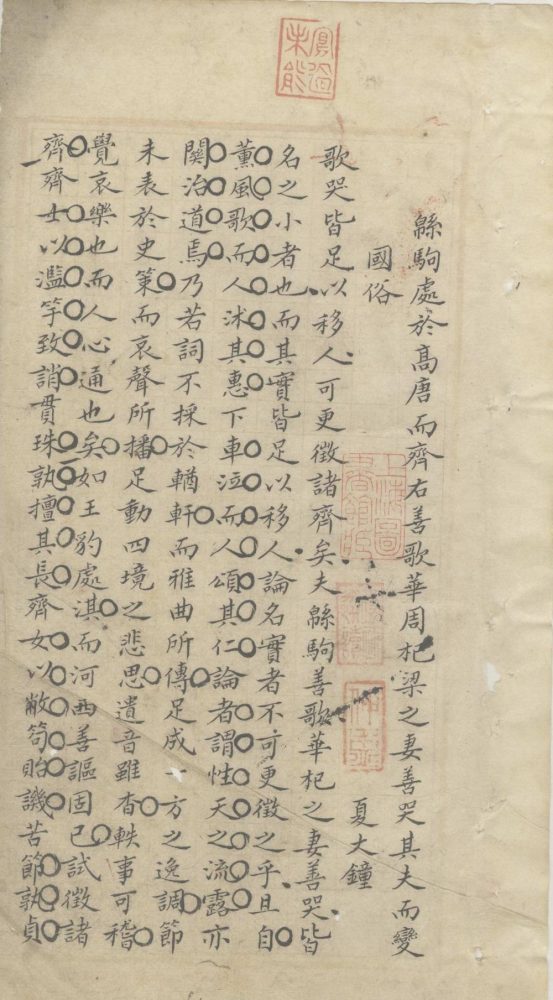 寡過未能
緜駒處於高唐而齊右善歌華周杞梁之妻善哭其夫而變
國俗
夏大鐘
歌哭皆足以移人可更徵諸齊矣夫緜駒善歌華杞之妻善哭皆
名之小者也而其實皆足以移人論名實者不可更徵之乎且自
薰風歌而人沐其惠下車泣而人頌其仁論者謂性天之流露亦
關治道焉乃若詞不採於輶軒而雅曲所傳足成一方之逸調節
未表於史策而哀聲所播足動四境之悲思遺音雖杳軼事可稽
覺哀樂也而人心通也矣如王豹處淇而河西善謳固已試徵諸
齊齊士以濫竽致誚貫珠孰擅其長齊女以敝笱貽譏苦節孰貞